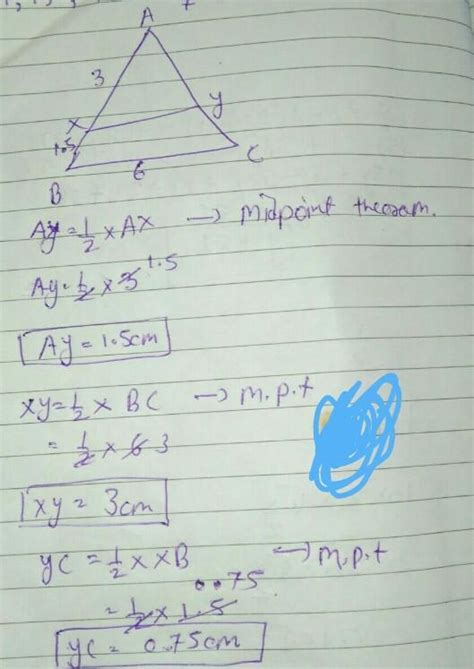 A
3
x
y
1.5
B
6
C
Ay = 1/2 x AX → Midpoint theoram.
Ay = 1/2 x 3 1.5
Ay = 1.5cm
xy = 1/2 x BC → m.p.t
= 1/2 x 6 3
xy = 3cm
yC = 1/2 x XB → m.p.t
0.75
= 1/2 x 1.5
yC = 0.75cm